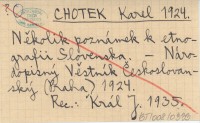 CHOTEK Karel 1924.
Několik poznámek k etno-
grafii Slovenska. – Náro-
dopisný Věstník Českoslovan-
ský (Praha) 1924.
Rec.: Král J. 1935.